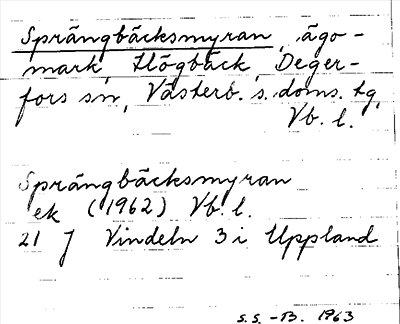 Sprängbäcksmyran, ägo-
mark, Högbäck, Deger-
fors sn, Västerb. s. doms. tg,
Vb. l.
Sprängbäcksmyran
ek (1962) Vb. l.
21 J Vindeln 3 i Uppland
S.S. -B. 1963